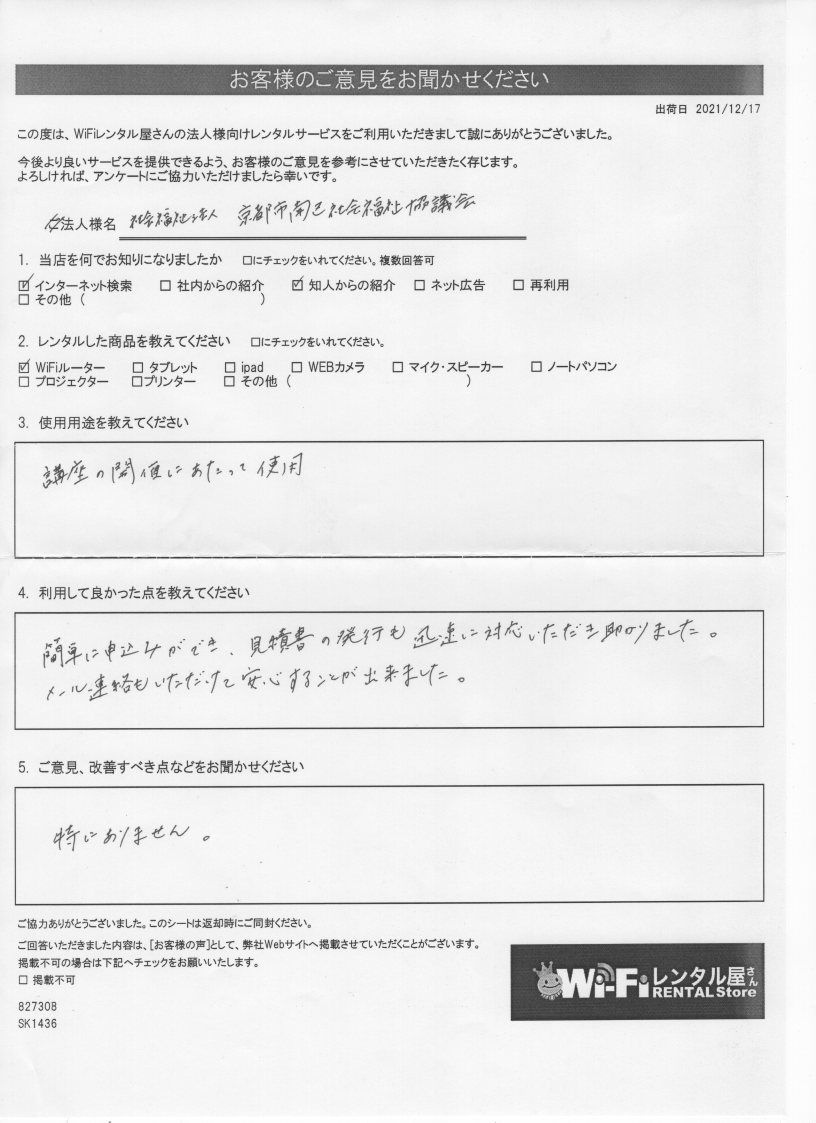 お客様のご意見をお聞かせください
出荷日 2021/12/17
この度は、WiFiレンタル屋さんの法人様向けレンタルサービスをご利用いただきまして誠にありがとうございました。
今後より良いサービスを提供できるよう、お客様のご意見を参考にさせていただきたく存じます。
よろしければ、アンケートにご協力いただけましたら幸いです。
法人様名 社会福祉法人 京都市南区社会福祉協議会
1. 当店を何でお知りになりましたか □にチェックをいれてください。複数回答可
☑ インターネット検索 □ 社内からの紹介 ☑ 知人からの紹介 □ ネット広告 □ 再利用
□ その他 ( )
2. レンタルした商品を教えてください □にチェックをいれてください。
☑ WiFiルーター □ タブレット □ ipad □ WEBカメラ □ マイク・スピーカー □ ノートパソコン
□ プロジェクター □プリンター □ その他 ( )
3. 使用用途を教えてください
講座の開催にあたって使用
4. 利用して良かった点を教えてください
簡単に申込みができ、見積書の発行も迅速に対応いただき助かりました。
メール連絡もいただけて安心することが出来ました。
5. ご意見、改善すべき点などをお聞かせください
特にありません。
ご協力ありがとうございました。このシートは返却時にご同封ください。
ご回答いただきました内容は、[お客様の声]として、弊社Webサイトへ掲載させていただくことがございます。
掲載不可の場合は下記へチェックをお願いいたします。
□ 掲載不可
Wi-Fiレンタル屋さん
RENTAL Store
827308
SK1436